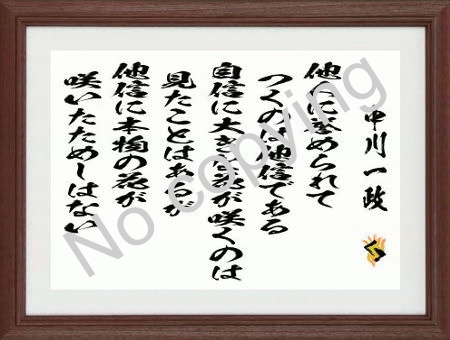 中川一政
他人に誉められて
つくのは他信である
自信に大きな花が咲くのは
見たことはあるが
他信に本物の花が
咲いたためしはない
No copying